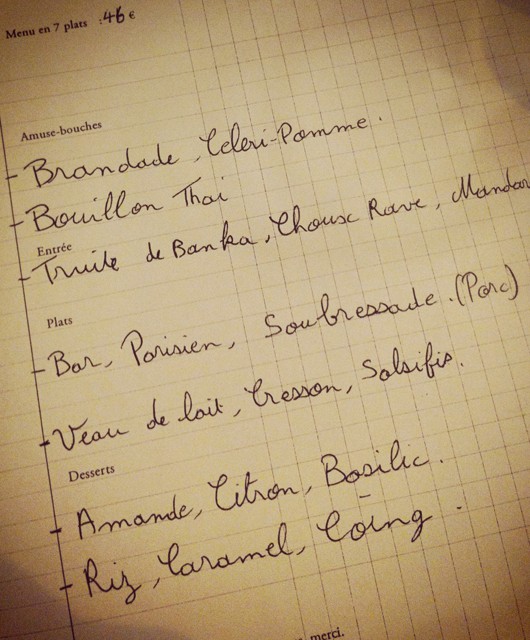 Menu en 7 plats : 46 €
Amuse-bouches
- Brandade, Céleri-Pomme.
- Bouillon Thai
Entrée
- Truite de Banka, Choux Rave, Mandar
Plats
- Bar, Parisien, Soubressade. (Porc)
- Veau de lait, Cresson, Salsifis.
Desserts
- Amande, Citron, Basilic.
- Riz, Caramel, Coing.
merci.